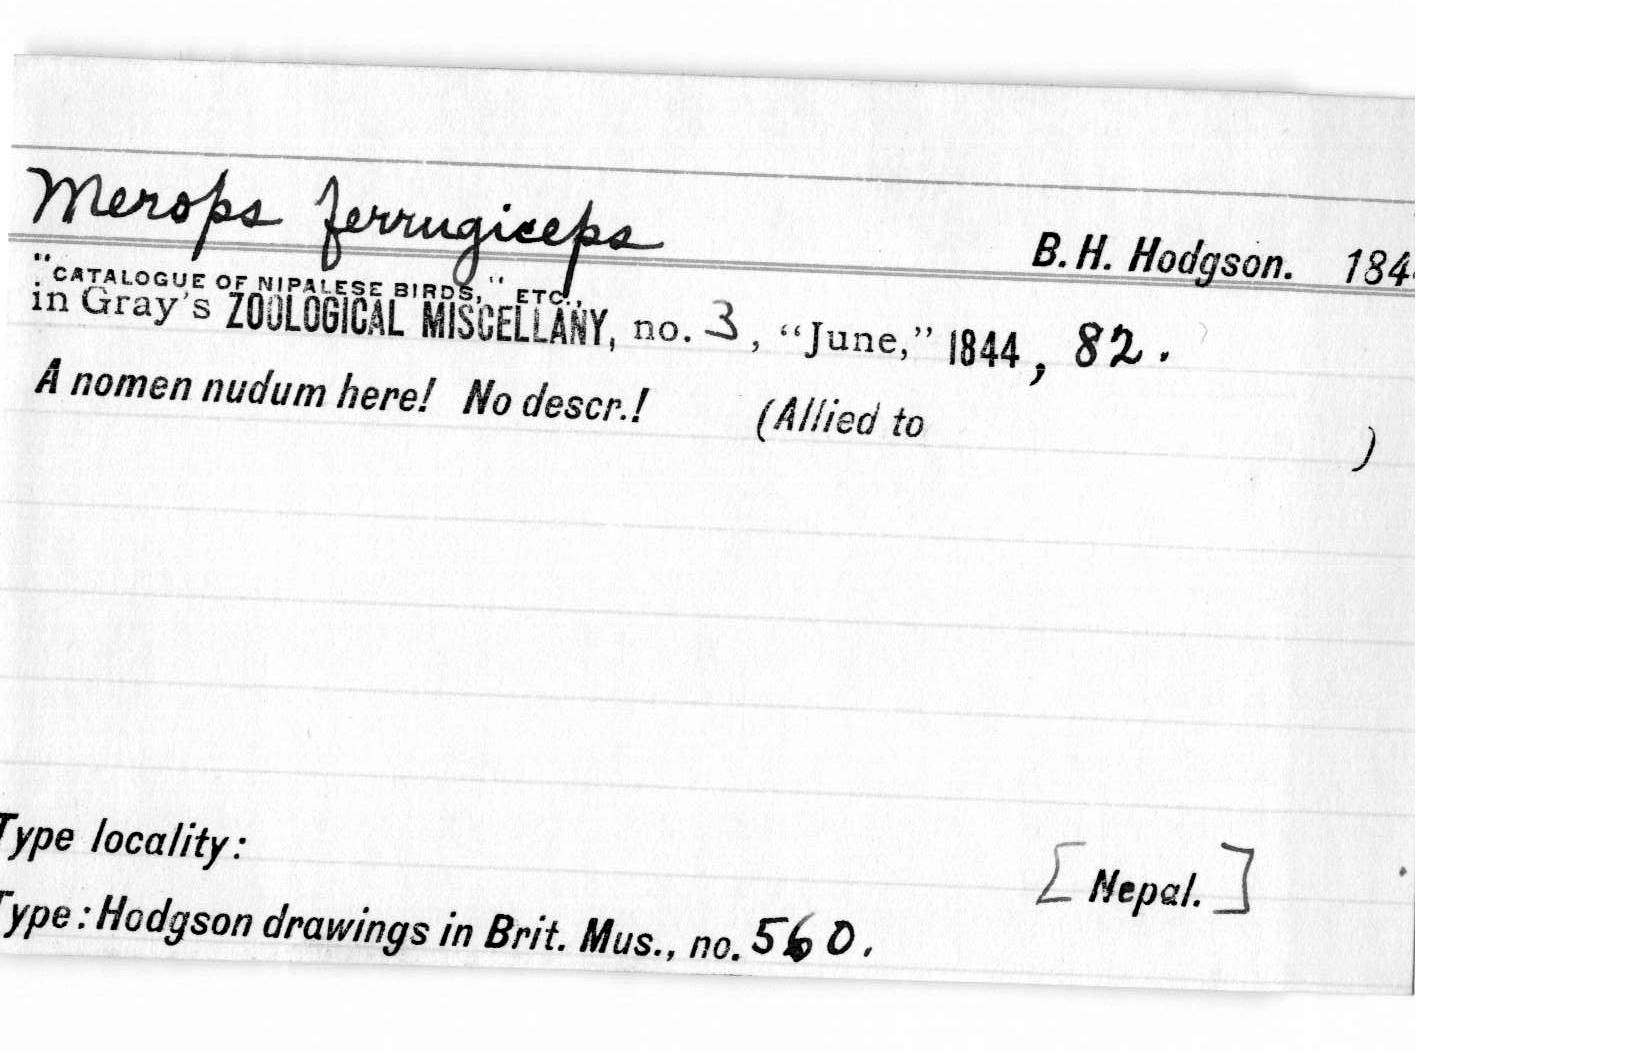 Merops ferrugiceps
B. H. Hodgson. 184
"CATALOGUE OF NIPALESE BIRDS," ETC.,
in Gray's ZOOLOGICAL MISCELLANY, no. 3, "June," 1844, 82.
A nomen nudum here! No descr.! (Allied to )
Type locality: [Nepal.]
Type: Hodgson drawings in Brit. Mus., no. 560.